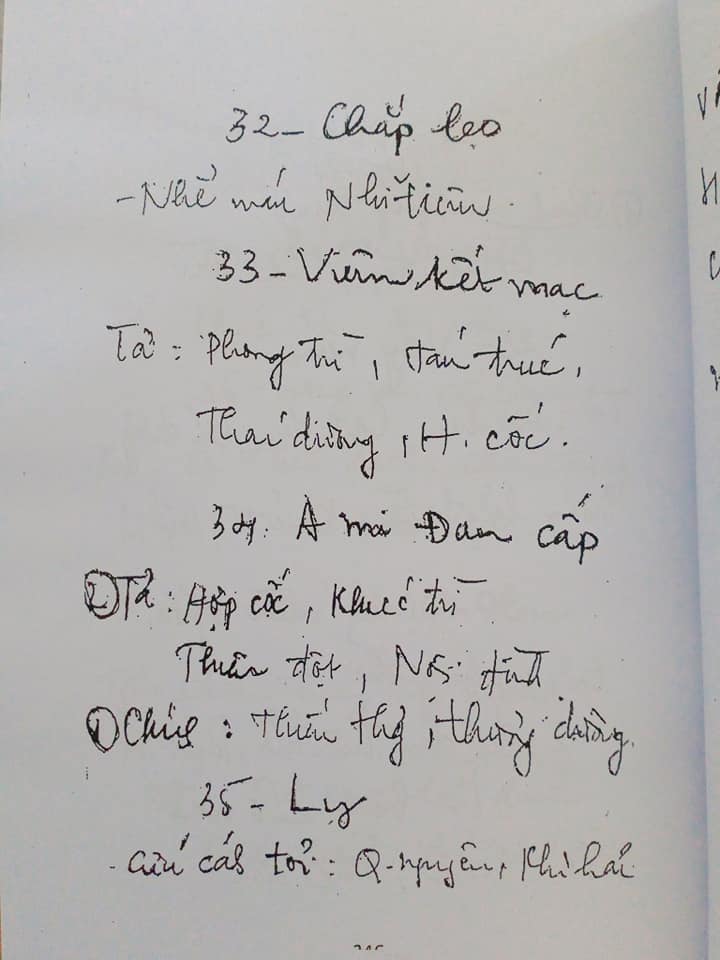 32- Chắp lẹo
- Nhể máu Nhĩ tiêm.
33- Viêm kết mạc
Tả: Phong trì, toán trúc,
Thái dương, H. cốc.
34. A mi Đan cấp
① Tả: Hợp cốc, Khúc trì
Thiên đột, Nội đình
① Châm: Thiếu thg, thương dương.
35- Lỵ
- Cứu cách tỏi: Q-nguyên, Khí hải